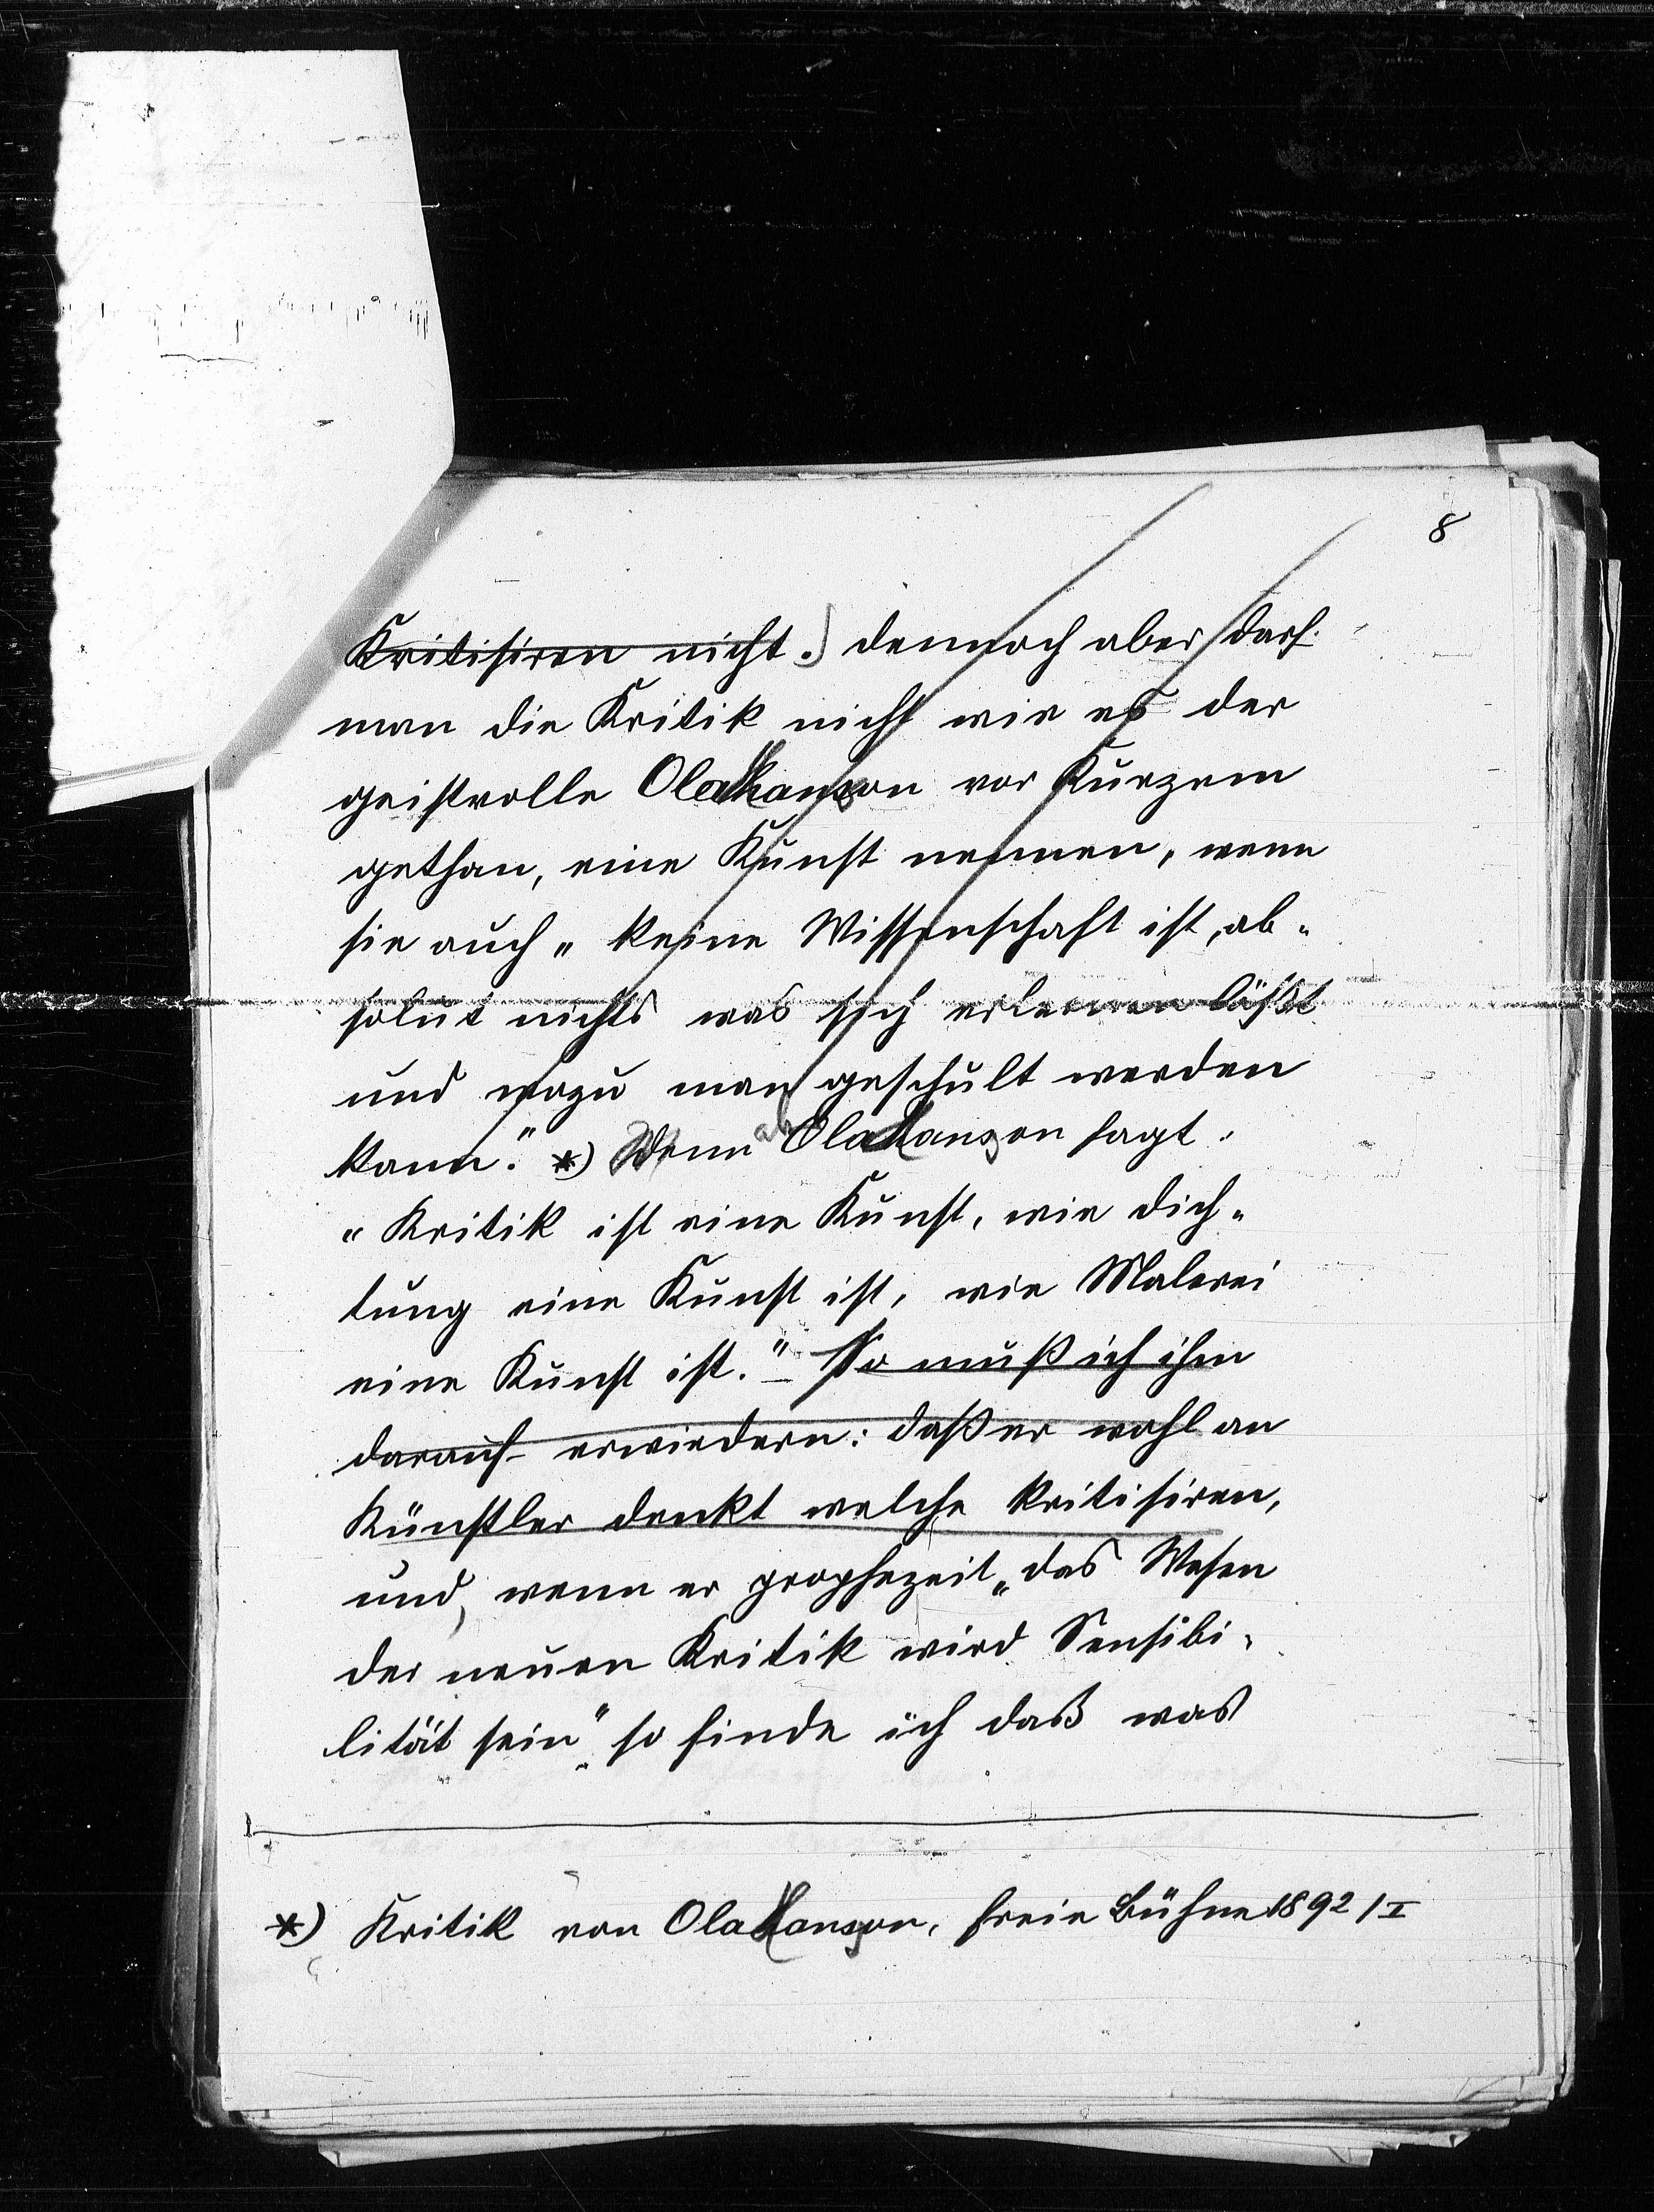 8
Kritisiren nicht.) dennoch aber darf
man die Kritik nicht wie es der
geistvolle Ola Hansson vor Kurzem
gethan, eine Kunst nennen, wenn
sie auch „keine Wissenschaft ist, ab-
solut nichts was sich erlernen läßt
und wozu man geschult werden
kann." *) Wenn Ola Hansson sagt:
„Kritik ist eine Kunst, wie Dich-
tung eine Kunst ist, wie Malerei
eine Kunst ist." So muß ich ihm
darauf erwiedern: daß er wohl an
Künstler denkt welche kritisiren,
und, wenn er prophezeit „das Wesen
der neuen Kritik wird Sensibi-
lität sein" so finde ich daß was
*) Kritik von Ola Hansson, freie Bühne 1892/I